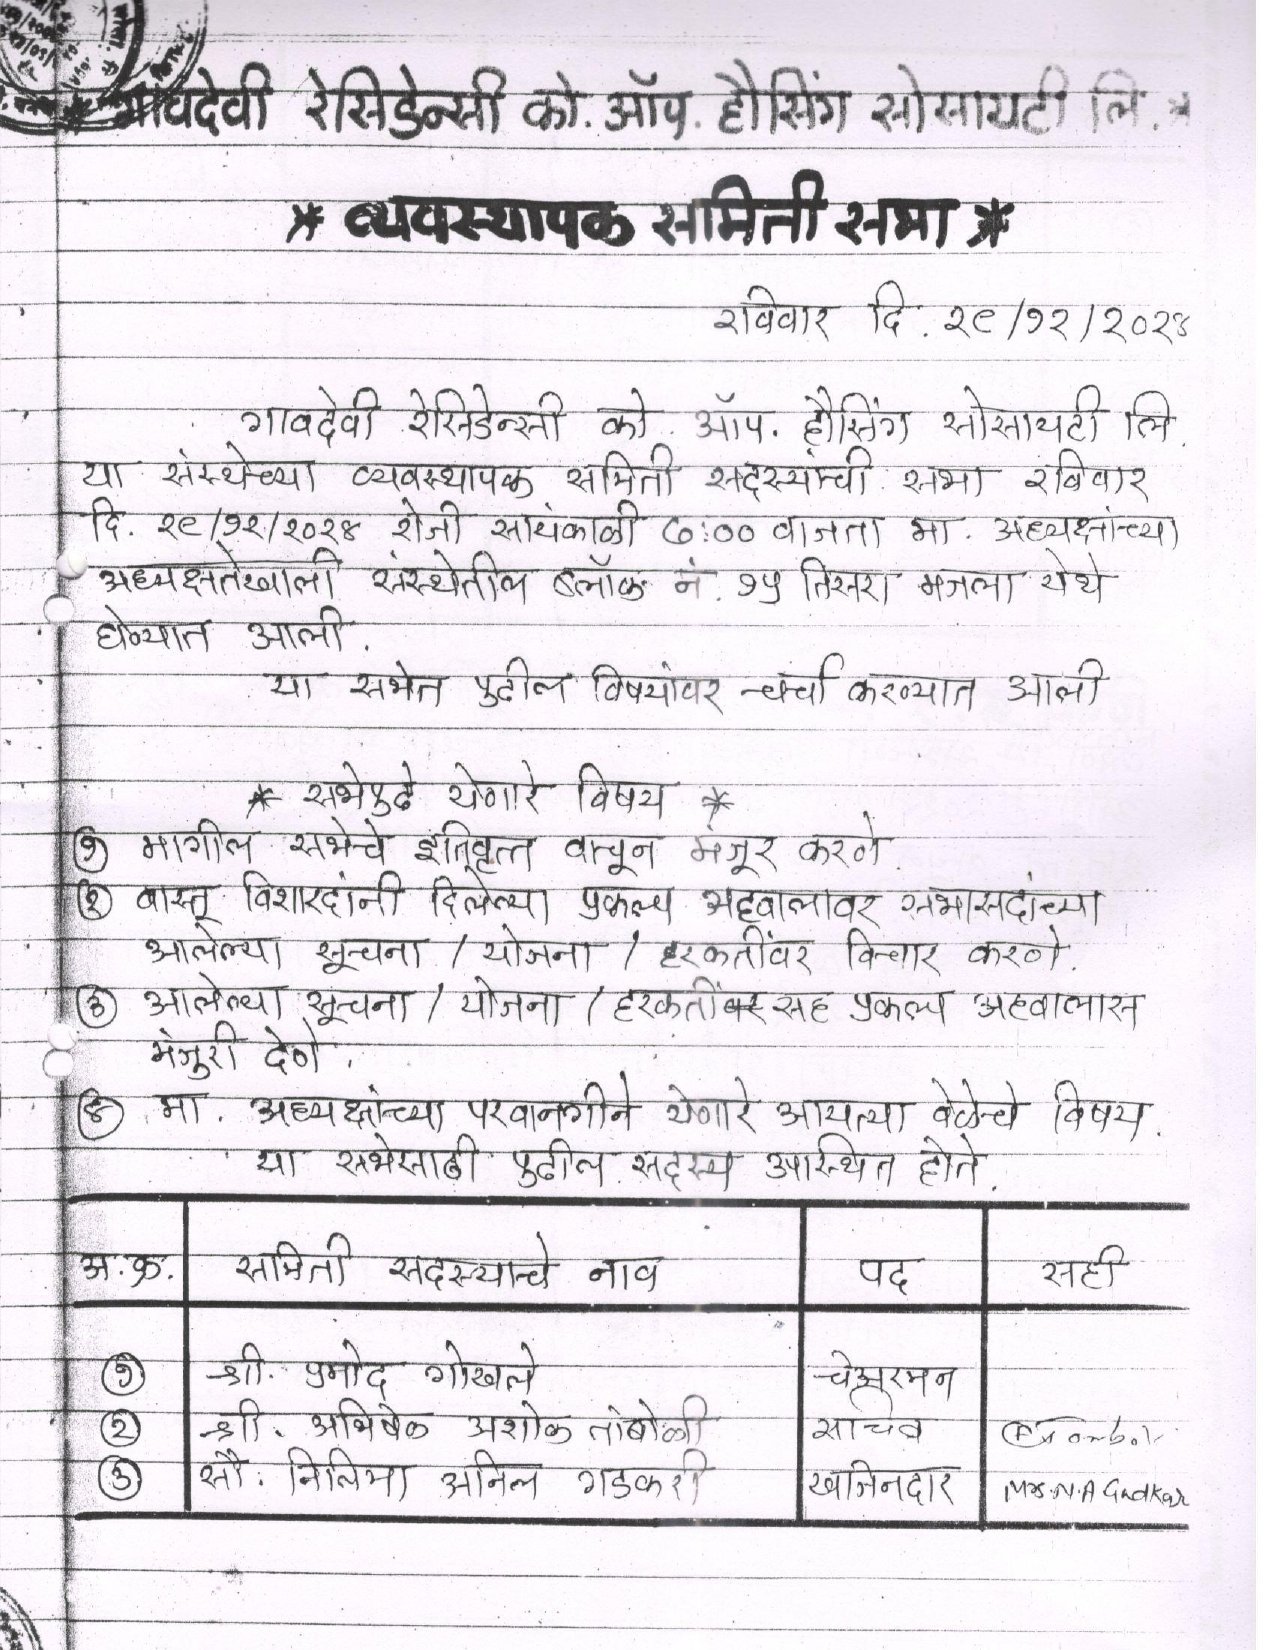 गावदेवी रेसिडेन्सी को. ऑप. हौसिंग सोसायटी लि. *
* व्यवस्थापक समिती सभा *
रविवार दि. २९/१२/२०२४
गावदेवी रेसिडेन्सी को. ऑप. हौसिंग सोसायटी लि.
या संस्थेच्या व्यवस्थापक समिती सदस्यांची सभा रविवार
दि. २९/१२/२०२४ रोजी सायंकाळी ७:०० वाजता मा. अध्यक्षांच्या
अध्यक्षतेखाली संस्थेतील ब्लॉक नं. १५ तिसरा मजला येथे
घेण्यात आली.
या सभेत पुढील विषयांवर चर्चा करण्यात आली
* सभेपुढे येणारे विषय *
१ मागील सभेचे इतिवृत्त वाचून मंजूर करणे.
२ वास्तू विशारदांनी दिलेल्या प्रकल्प अहवालावर सभासदांच्या
आलेल्या सूचना / योजना / हरकतींवर विचार करणे.
३ आलेल्या सूचना / योजना / हरकतींसह प्रकल्प अहवालास
मंजुरी देणे.
४ मा. अध्यक्षांच्या परवानगीने येणारे आयत्या वेळेचे विषय.
या सभेसाठी पुढील सदस्य उपस्थित होते.
अ.क्र. समिती सदस्याचे नाव पद सही
१ श्री. प्रमोद गोखले चेअरमन
२ श्री. अभिषेक अशोक तांबोळी सचिव
३ सौ. निलिमा अनिल गडकरी खजिनदार Mrs. N. A Gadkar